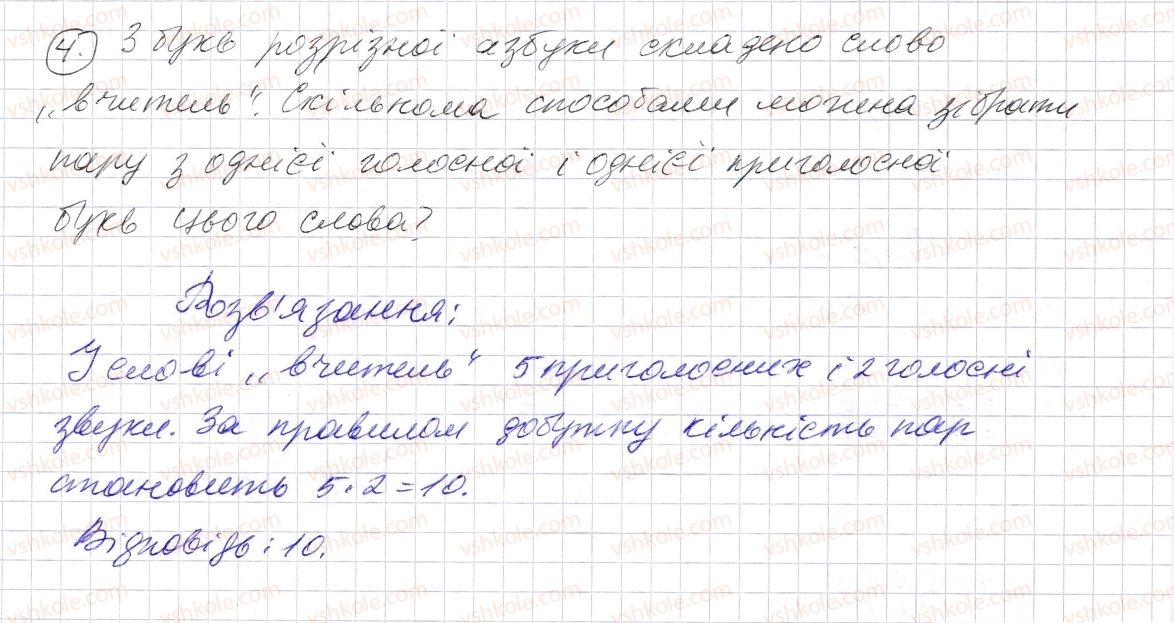 4. З букв розрізної азбуки складено слово
„вчитель". Скількома способами можна зібрати
пару з однієї голосної і однієї приголосної
букв цього слова?
Розв'язання:
У слові „вчитель" 5 приголосних і 2 голосні
звуки. За правилом добутку кількість пар
становить 5·2=10.
Відповідь: 10.